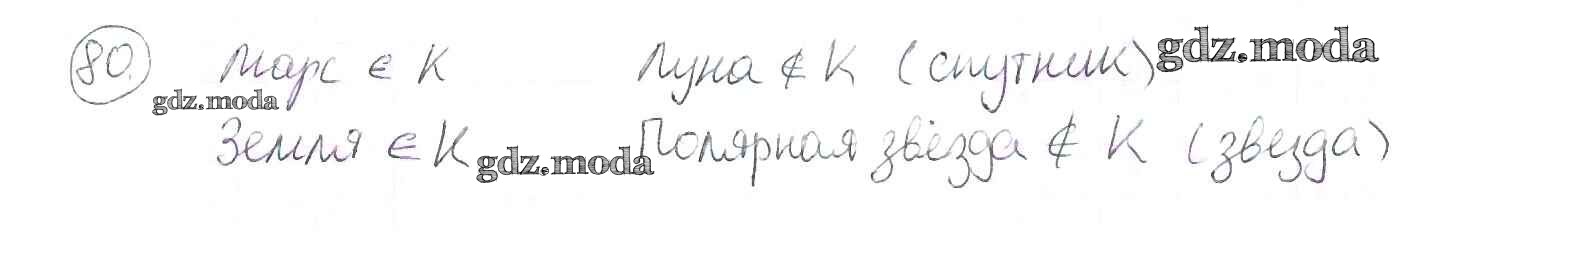 80. Марс ∈ К Луна ∉ К (спутник) gdz.moda
gdz.moda
Земля ∈ К gdz.moda Полярная звёзда ∉ К (звезда)